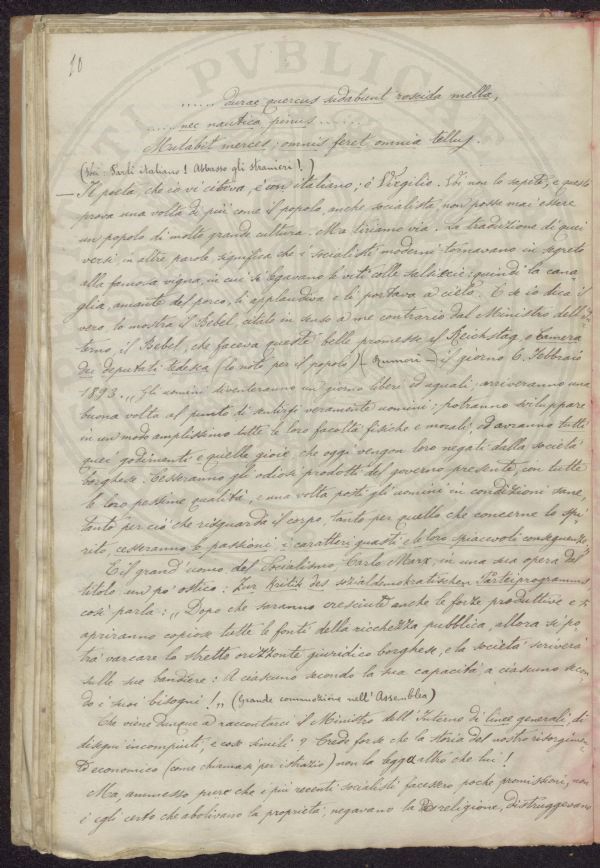 10
..... durae quercus sudabunt roscida mella,
..... nec nautica pinus .....
Mutabit merces; omnis feret omnia tellus.
(Voci: Parli italiano! Abbasso gli stranieri!)
— Il poeta, che io vi citava, è con italiano; è Virgilio. Voi non lo sapete; e questo
prova una volta di più come il popolo, anche socialista, non possa mai essere
un popolo di molto grande cultura. Ma tiriamo via. La traduzione di quei
versi in altre parole significa che i socialisti moderni tornavano in segreto
alla famosa vigna, in cui si legavano le viti colle salsicce: quindi la cana
glia, amante del porco, li applaudiva e li portava a cielo. E se io dica il
vero lo mostra il Bebel, citato in senso a me contrario dal Ministro dell'In
terno, il Bebel, che faceva queste belle promesse al Reichstag, o Camera
dei deputati tedesca (lo noto per il popolo) — Rumori — il giorno 6 Febbraio
1893. „Gli uomini diventeranno un giorno liberi ed uguali; arriveranno una
buona volta al punto di sentirsi veramente uomini: potranno sviluppare
in un modo amplissimo tutte le loro facoltà fisiche e morali, ed avranno tutti
quei godimenti e quelle gioie, che oggi vengon loro negati della società
borghese. Cesseranno gli odiosi prodotti del governo presente, con tutte
le loro pessime qualità, e una volta posti gli uomini in condizioni sane,
tanto per ciò che risguarda il corpo, tanto per quello che concerne lo spi
rito, cesseranno le passioni, i caratteri guasti e le loro spiacevoli conseguenze„
E il grand'uomo del Socialismo, Carlo Marx, in una sua opera dal
titolo un po' ostico: Zur Kritik des sozialdemokratischen Parteiprogramms,
così parla: „Dopo che saranno cresciute anche le forze produttive e si
apriranno copiose tutte le fonti della ricchezza pubblica, allora si po
trà varcare lo stretto orizzonte giuridico borghese, e la società scriverà
sulle sue bandiere: A ciascuno secondo la sua capacità, a ciascuno secon
do i suoi bisogni!„ (Grande commozione nell'Assemblea)
Che viene dunque a raccontarci il Ministro dell'Interno di linee generali, di
disegni incompiuti, e cose simili? Crede forse che la storia del nostro risorgimen
to economico (come chiamasi per istrazio) non la legga altro che lui!
Ma, ammesso pure che i più recenti socialisti facessero poche promissioni, non
è egli certo che abolivano la proprietà, negavano la religione, distruggevano